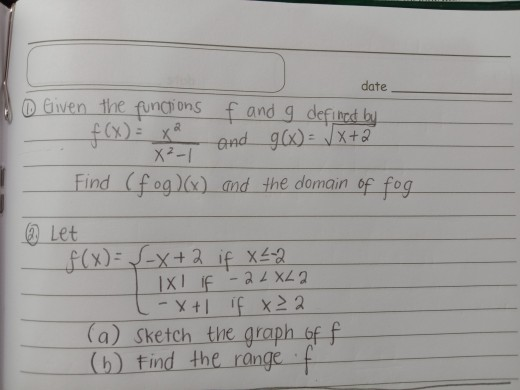 date
① Given the functions f and g defined by
f(x) = x²/x²-1 and g(x) = √x+2
Find (fog)(x) and the domain of fog
② Let
f(x) = { -x+2 if x≤-2
|x| if -2<x<2
-x+1 if x≥2
(a) Sketch the graph of f
(b) Find the range f